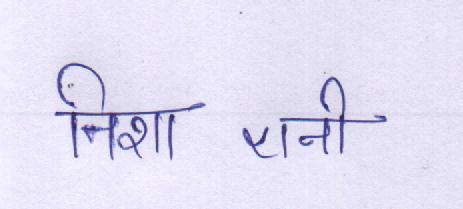 निशा रानी